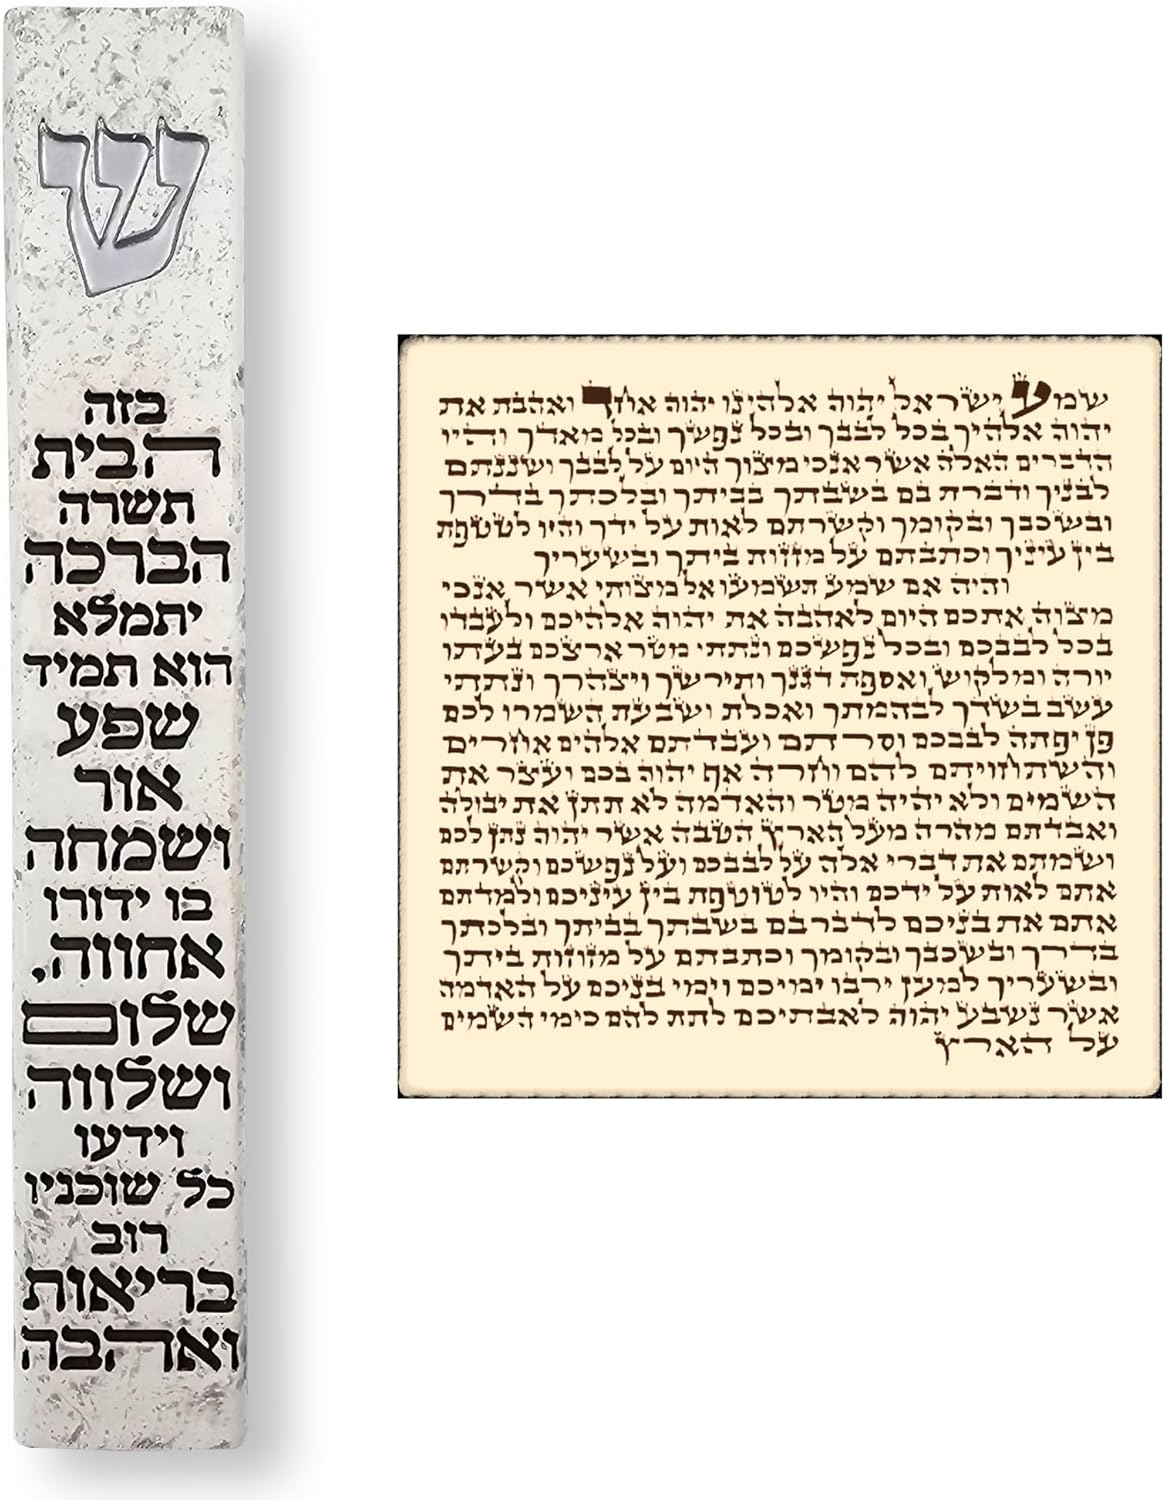 ש
בזה
הבית
תשרה
הברכה
יתמלא
הוא תמיד
שפע
אור
ושמחה
בו ידורו
אחווה,
שלום
ושלווה
וידעו
כל שוכניו
רוב
בריאות
ואהבה
שמע ישראל יהוה אלהינו יהוה אחד ואהבת את
יהוה אלהיך בכל לבבך ובכל נפשך ובכל מאדך והיו
הדברים האלה אשר אנכי מצוך היום על לבבך ושננתם
לבניך ודברת בם בשבתך בביתך ובלכתך בדרך
ובשכבך ובקומך וקשרתם לאות על ידך והיו לטטפת
בין עיניך וכתבתם על מזזות ביתך ובשעריך
והיה אם שמע תשמעו אל מצותי אשר אנכי
מצוה אתכם היום לאהבה את יהוה אלהיכם ולעבדו
בכל לבבכם ובכל נפשכם ונתתי מטר ארצכם בעתו
יורה ומלקוש ואספת דגנך ותירשך ויצהרך ונתתי
עשב בשדך לבהמתך ואכלת ושבעת השמרו לכם
פן יפתה לבבכם וסרתם ועבדתם אלהים אחרים
והשתחויתם להם וחרה אף יהוה בכם ועצר את
השמים ולא יהיה מטר והאדמה לא תתן את יבולה
ואבדתם מהרה מעל הארץ הטבה אשר יהוה נתן לכם
ושמתם את דברי אלה על לבבכם ועל נפשכם וקשרתם
אתם לאות על ידכם והיו לטוטפת בין עיניכם ולמדתם
אתם את בניכם לדבר בם בשבתך בביתך ובלכתך
בדרך ובשכבך ובקומך וכתבתם על מזוזות ביתך
ובשעריך למען ירבו ימיכם וימי בניכם על האדמה
אשר נשבע יהוה לאבתיכם לתת להם כימי השמים
על הארץ